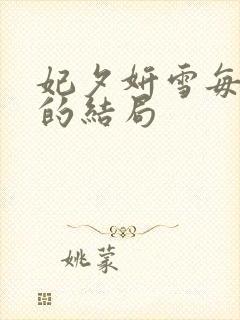 妃夕妍雪每
的結局
姚蒙